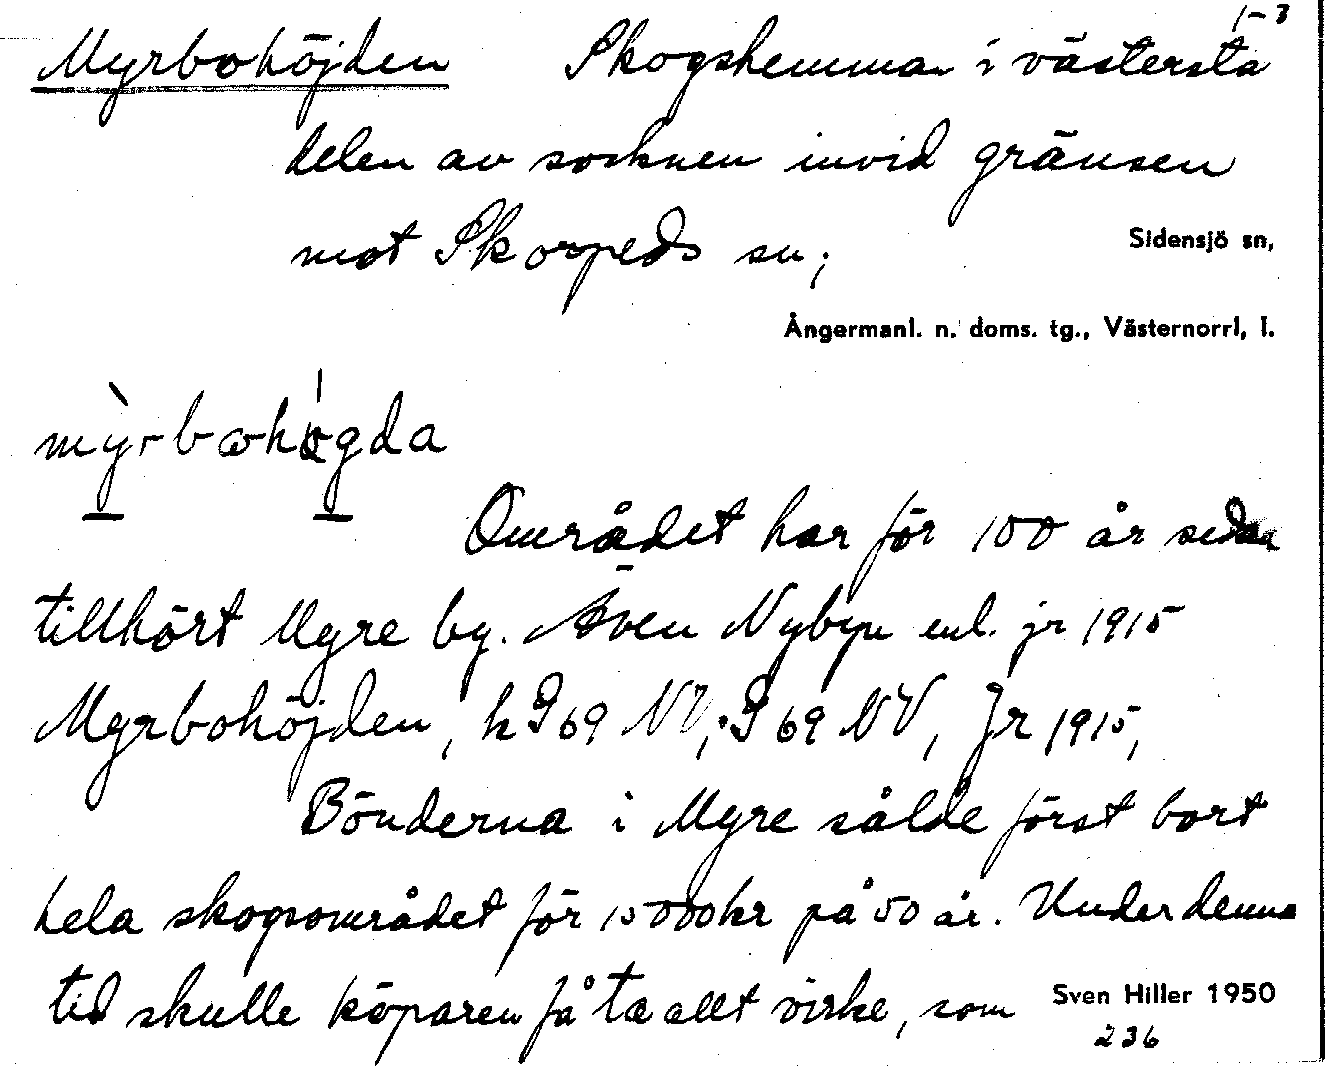 1-3
Myrbohöjden Skogshemman i västersta
delen av socknen invid gränsen
mot Skorpeds sn;
Sidensjö sn,
Ångermanl. n. doms. tg., Västernorrl, l.
Området har för 100 år sedan
tillhört Myre by. Även Nybyn enl. jr 1915
Myrbohöjden, k I 69 NV; I 69 NV, Jr 1915,
Bönderna i Myre sålde först bort
hela skogsområdet för 15000kr på 50 år. Under denna
tid skulle köparen få ta allt virke, som
Sven Hiller 1950
236